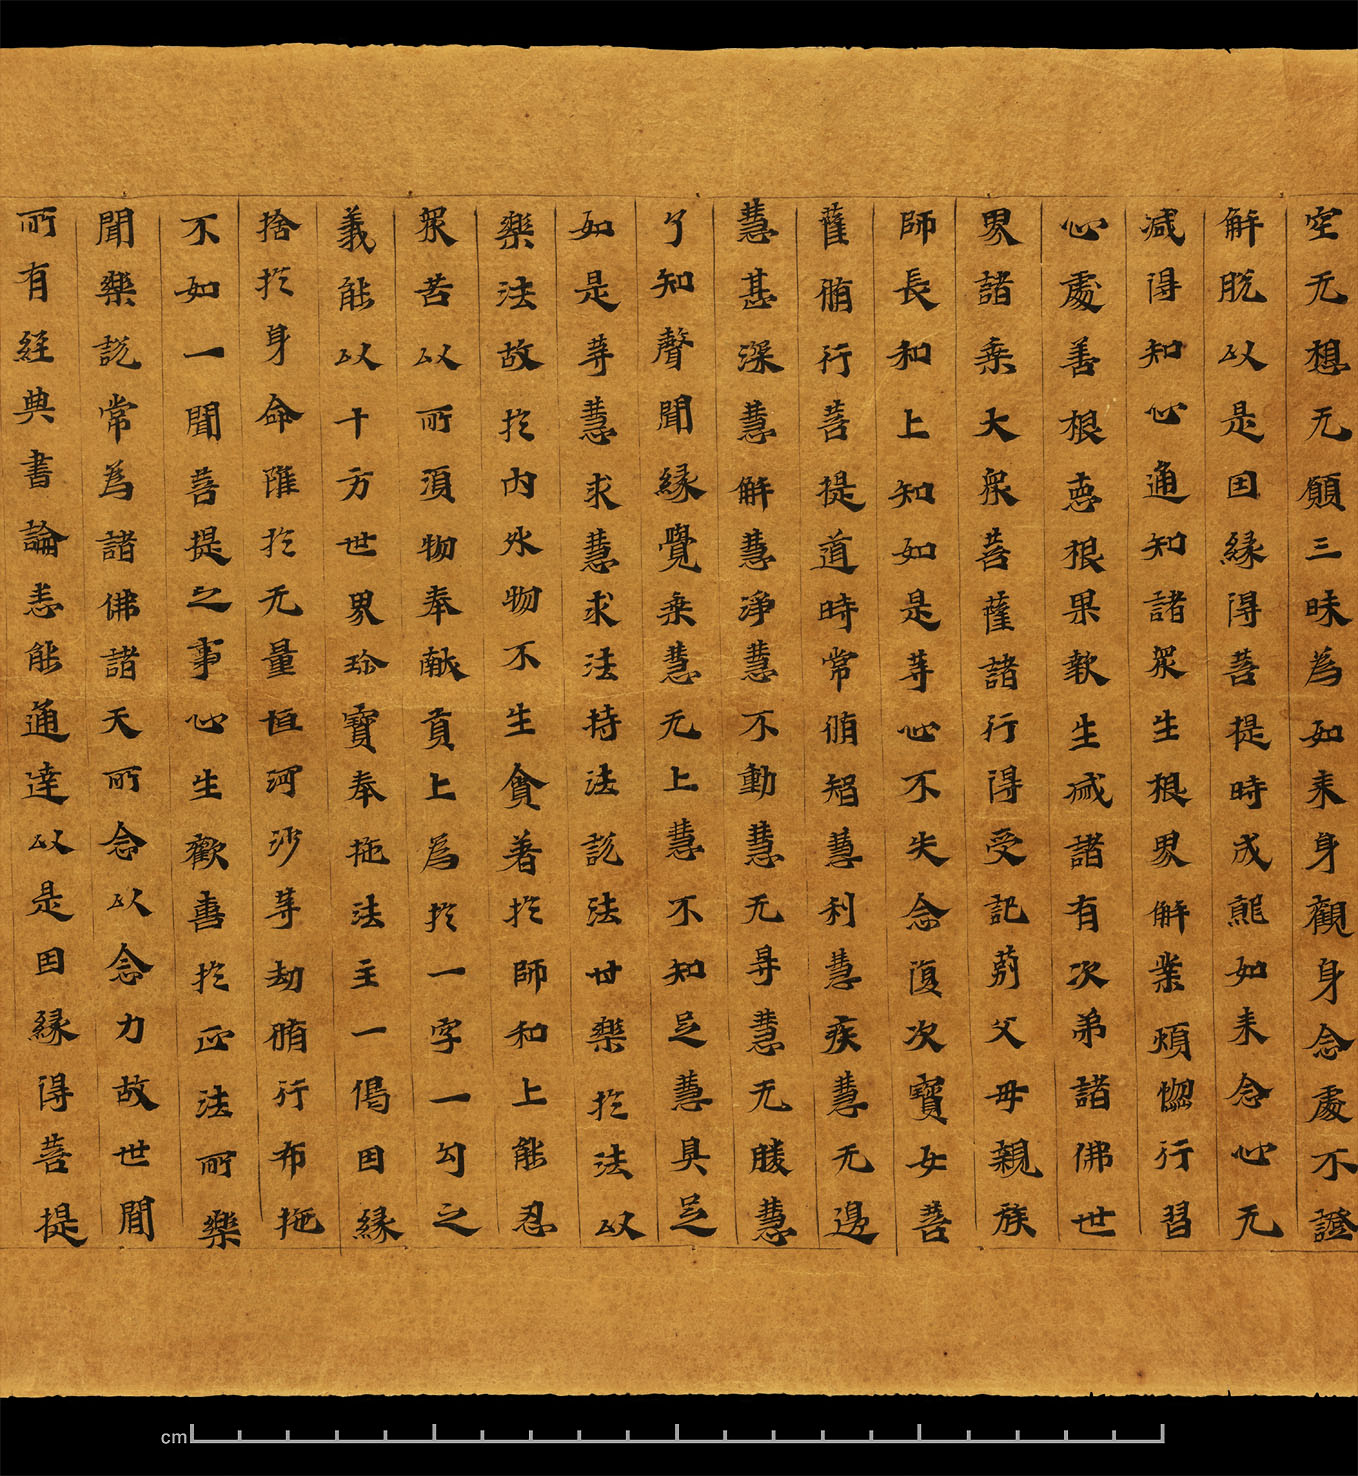 空无想无願三昧為如来身觀身念處不證
解脫以是因緣得菩提時成熊如来念心无
減得知心通知諸衆生根界解業煩惚行習
心處善根惡根果報生滅諸有次弟諸佛世
界諸乘大衆菩薩諸行得受記莂父母親族
師長和上知如是等心不失念復次寶女菩
薩脩行菩提道時常脩智慧利慧疾慧无邊
慧甚深慧解慧淨慧不動慧无㝵慧无勝慧
了知聲聞緣覺乘慧无上慧不知足慧具足
如是等慧求慧求法持法說法甘樂於法以
樂法故於內外物不生貪著於師和上能忍
衆苦以所須物奉獻貢上為於一字一勾之
義能以十方世界珎寶奉施法主一偈因緣
捨於身命雖於无量恒河沙等劫脩行布施
不如一聞菩提之事心生歡喜於正法所樂
聞樂說常為諸佛諸天所念以念力故世間
所有経典書論悉能通達以是因緣得菩提